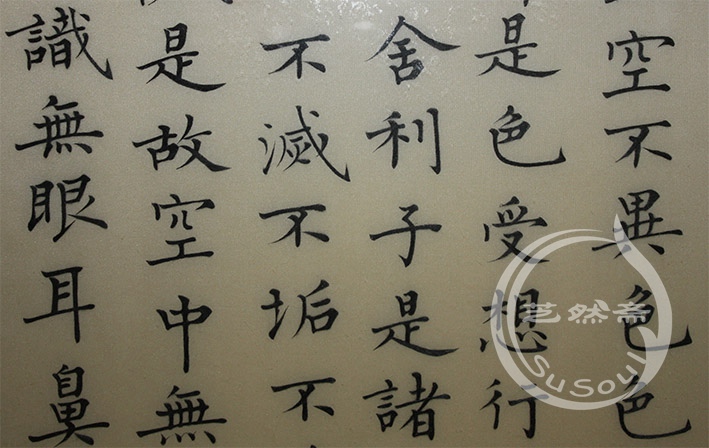 空不異色色
是色受想行
舍利子是諸
不滅不垢不
是故空中無
識無眼耳鼻
芝然斋
SuSoul